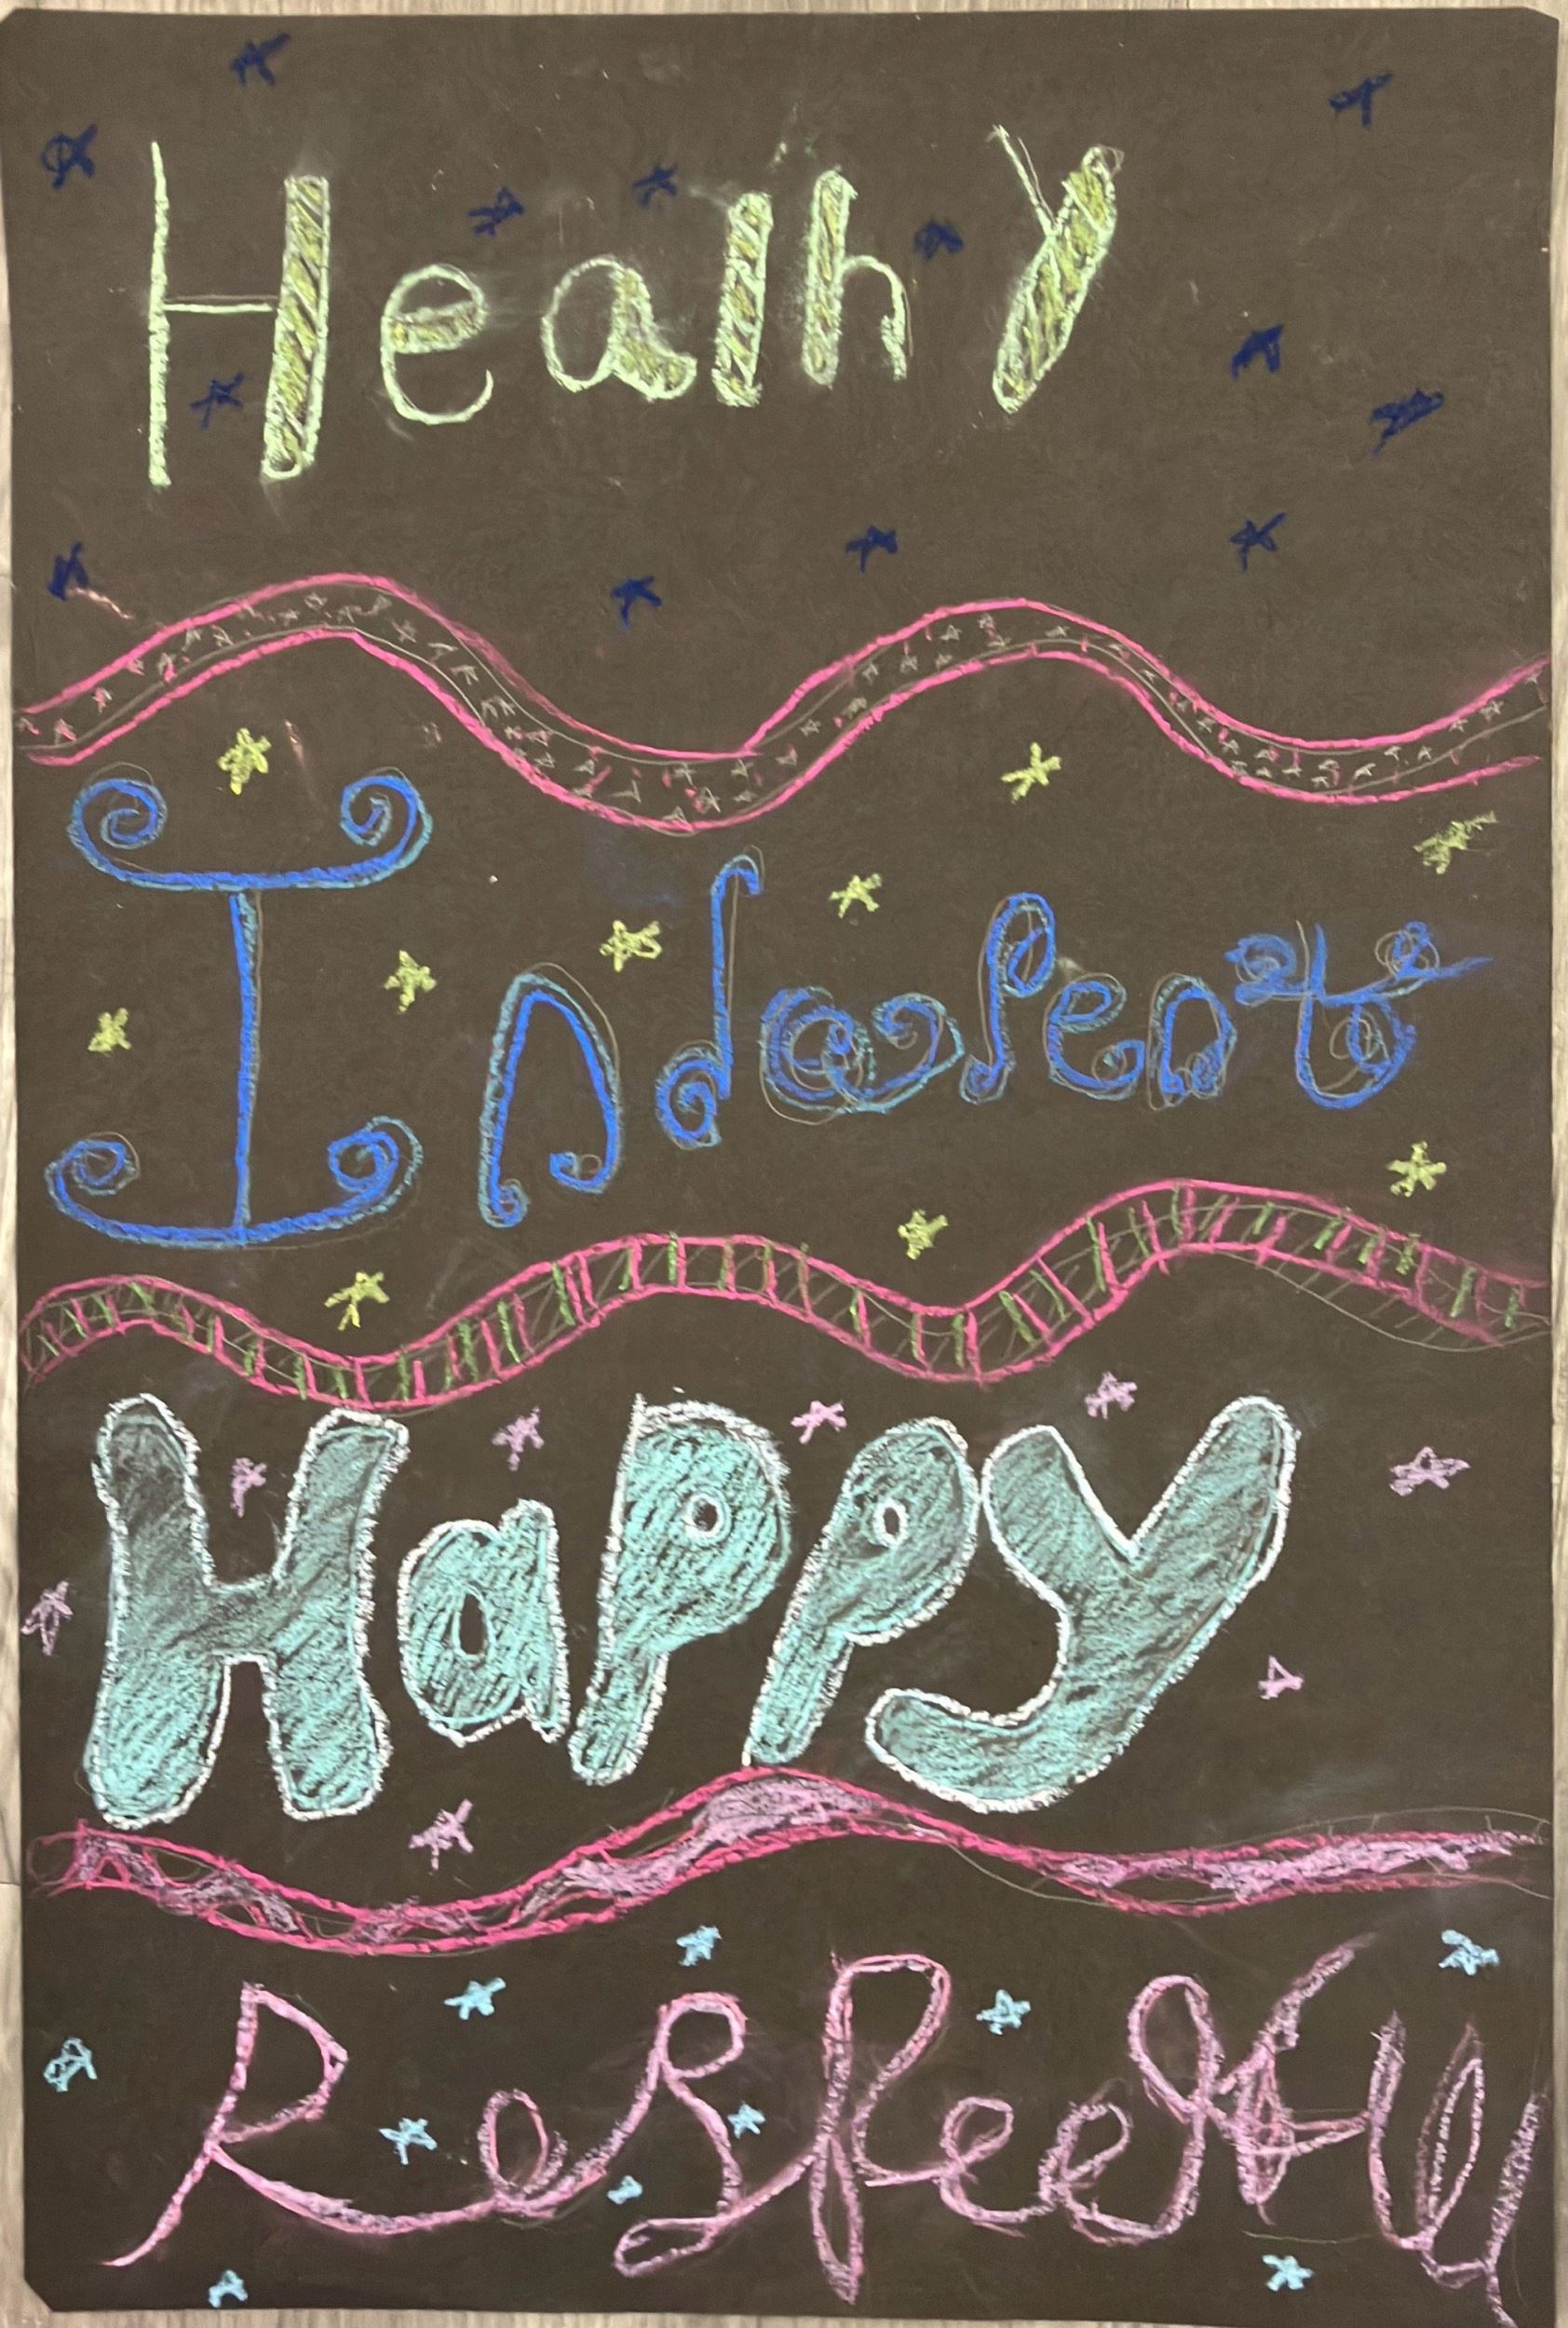 Healhy
Independent
Happy
Respectful